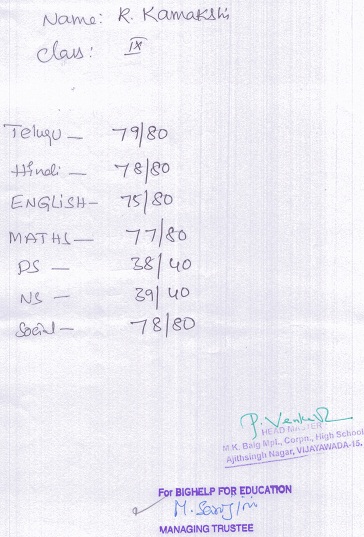 Name: R. Kamakshi
Class: IX
Telugu — 79/80
Hindi — 78/80
ENGLISH — 75/80
MATHS — 77/80
PS — 38/40
NS — 39/40
Social — 78/80
P. Venkat
HEAD MASTER
M.K. Baig Mpl., Corpn., High School
Ajithsingh Nagar, VIJAYAWADA-15.
For BIGHELP FOR EDUCATION
MANAGING TRUSTEE